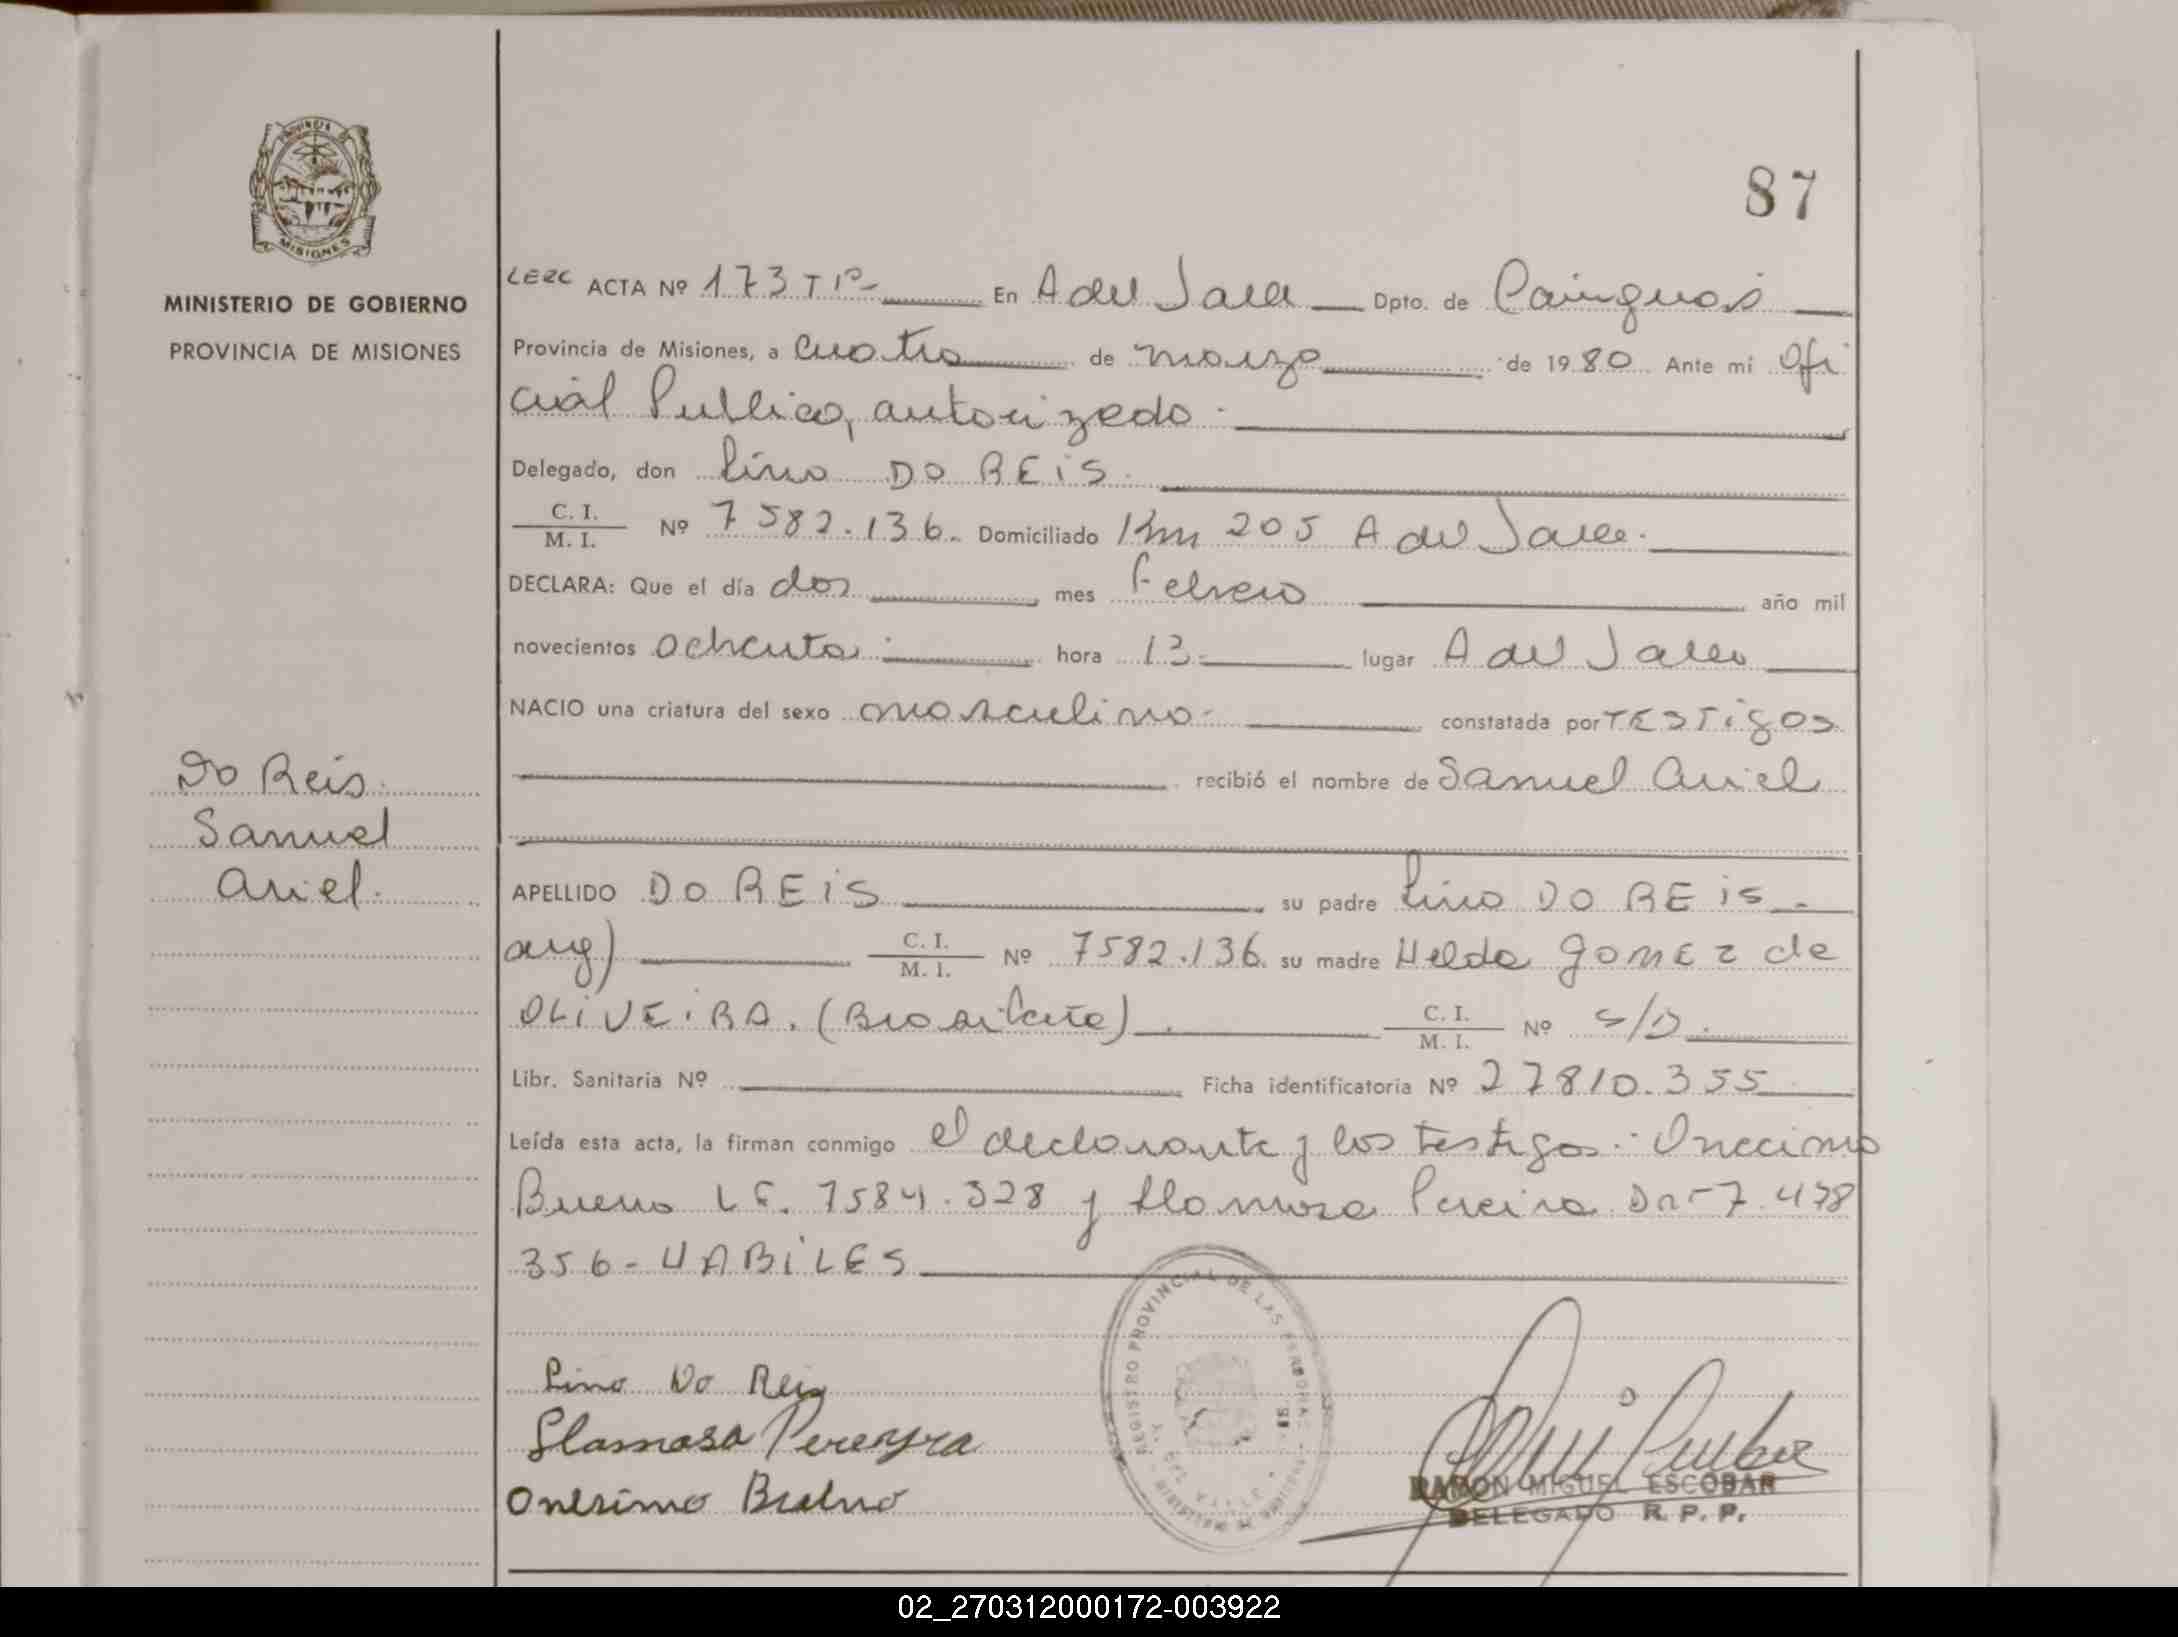 87
PROVINCIA DE
MISIONES
MINISTERIO DE GOBIERNO
PROVINCIA DE MISIONES
Do Reis.
Samuel
Ariel.
ACTA Nº 173 Tº En A del Valle Dpto. de Cainguas
Provincia de Misiones, a cuatro de marzo de 1980 Ante mi Ofi
cial Publico, autorizado.
Delegado, don Lino DO REIS.
C. I. / M. I. Nº 7582.136. Domiciliado Km 205 A del Valle.
DECLARA: Que el día dos mes Febrero año mil
novecientos ochenta. hora 13. lugar A del Valle
NACIO una criatura del sexo masculino. constatada por TESTigos
recibió el nombre de Samuel Ariel
APELLIDO DO REIS su padre Lino DO REIS.
arg) C. I. / M. I. Nº 7582.136. su madre Helda gomez de
OLIVEIRA. (Brasileña). C. I. / M. I. Nº S/D.
Libr. Sanitaria Nº Ficha identificatoria Nº 27810.355
Leída esta acta, la firman conmigo el declarante y los testigos: Onecimo
Bueno LE. 7584.328 y Llamosa Pereira Dn-7.478
356-HABILES
Lino Do Reis
Llamosa Pereyra
Onesimo Bueno
REGISTRO PROVINCIAL DE LAS PERSONAS
RAMON MIGUEL ESCOBAR
DELEGADO R. P. P.
02_270312000172-003922